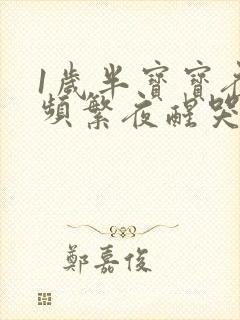 1歲半寶寶夜
頻繁夜醒哭
鄭嘉俊